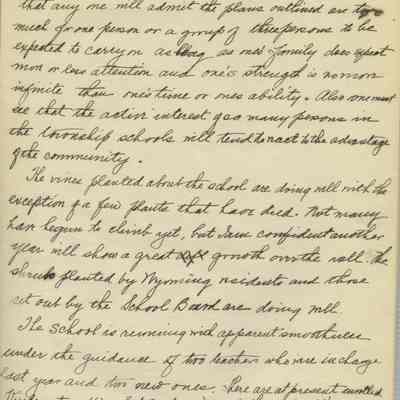 that any one will admit the plans outlined are too
much for one person or a group of three persons to be
expected to carry on as long as ones family does expect
more or less attention and one's strength is no more
infinite than one's time or ones ability. Also one must
see that the active interest of so many persons in
the township schools will tend to react to the advantage
of the community.
The vines planted about the school are doing well with the
exception of a few plants that have died. Not many
have begun to climb yet, but I am confident another
year will show a great growth over the wall. The
shrubs planted by Wyoming residents and those
set out by the School Board are doing well.
The School is running with apparent smoothness
under the guidance of two teachers who were in charge
last year and two new ones. There are at present enrolled